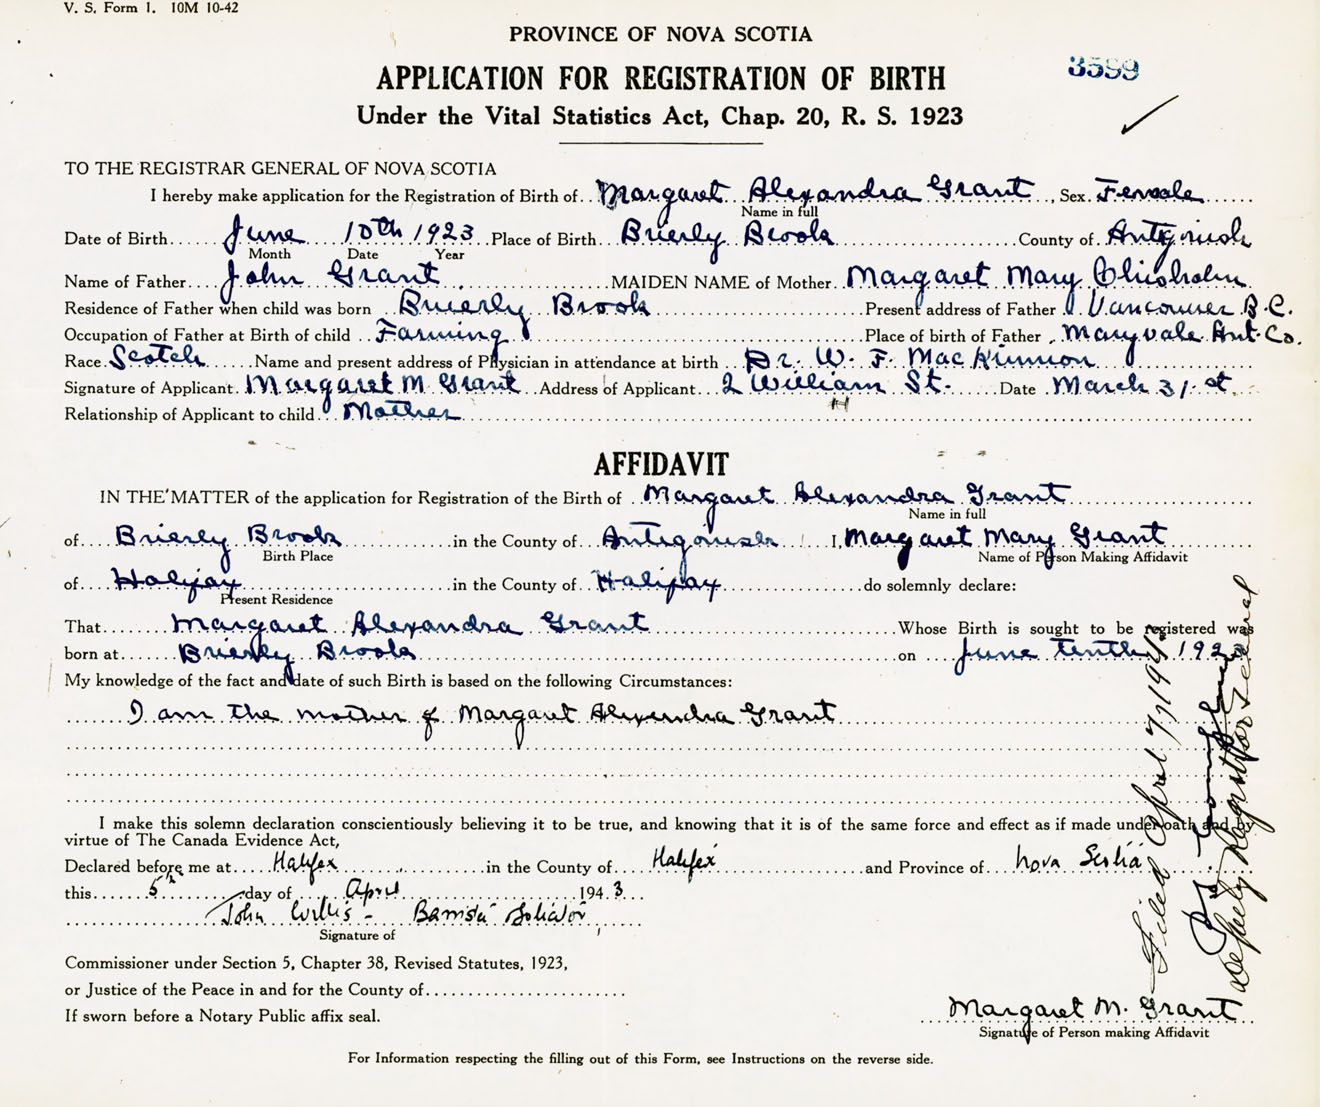 V. S. Form 1. 10M 10-42
PROVINCE OF NOVA SCOTIA
APPLICATION FOR REGISTRATION OF BIRTH
3599
Under the Vital Statistics Act, Chap. 20, R. S. 1923
TO THE REGISTRAR GENERAL OF NOVA SCOTIA
I hereby make application for the Registration of Birth of Margaret Alexandra Grant, Sex Female
Name in full
Date of Birth June 10th 1923 Place of Birth Brierly Brook County of Antigonish
Month Date Year
Name of Father John Grant MAIDEN NAME of Mother Margaret Mary Chisholm
Residence of Father when child was born Brierly Brook Present address of Father Vancouver B.C.
Occupation of Father at Birth of child Farming Place of birth of Father Maryvale Ant. Co.
Race Scotch Name and present address of Physician in attendance at birth Dr. W. F. MacKinnon
Signature of Applicant Margaret M. Grant Address of Applicant 2 William St. Date March 31st
Relationship of Applicant to child Mother
AFFIDAVIT
IN THE MATTER of the application for Registration of the Birth of Margaret Alexandra Grant
Name in full
of Brierly Brook in the County of Antigonish I, Margaret Mary Grant
Birth Place Name of Person Making Affidavit
of Halifax in the County of Halifax do solemnly declare:
Present Residence
That Margaret Alexandra Grant Whose Birth is sought to be registered was
born at Brierly Brook on June tenth 1923
My knowledge of the fact and date of such Birth is based on the following Circumstances:
I am the mother of Margaret Alexandra Grant
I make this solemn declaration conscientiously believing it to be true, and knowing that it is of the same force and effect as if made under oath and by
virtue of The Canada Evidence Act,
Declared before me at Halifax in the County of Halifax and Province of Nova Scotia
this 5th day of April 1943
John Willis - Barrister Solicitor
Signature of
Commissioner under Section 5, Chapter 38, Revised Statutes, 1923,
or Justice of the Peace in and for the County of
If sworn before a Notary Public affix seal.
Margaret M. Grant
Signature of Person making Affidavit
For Information respecting the filling out of this Form, see Instructions on the reverse side.
Filed April 7, 1943
Deputy Registrar General